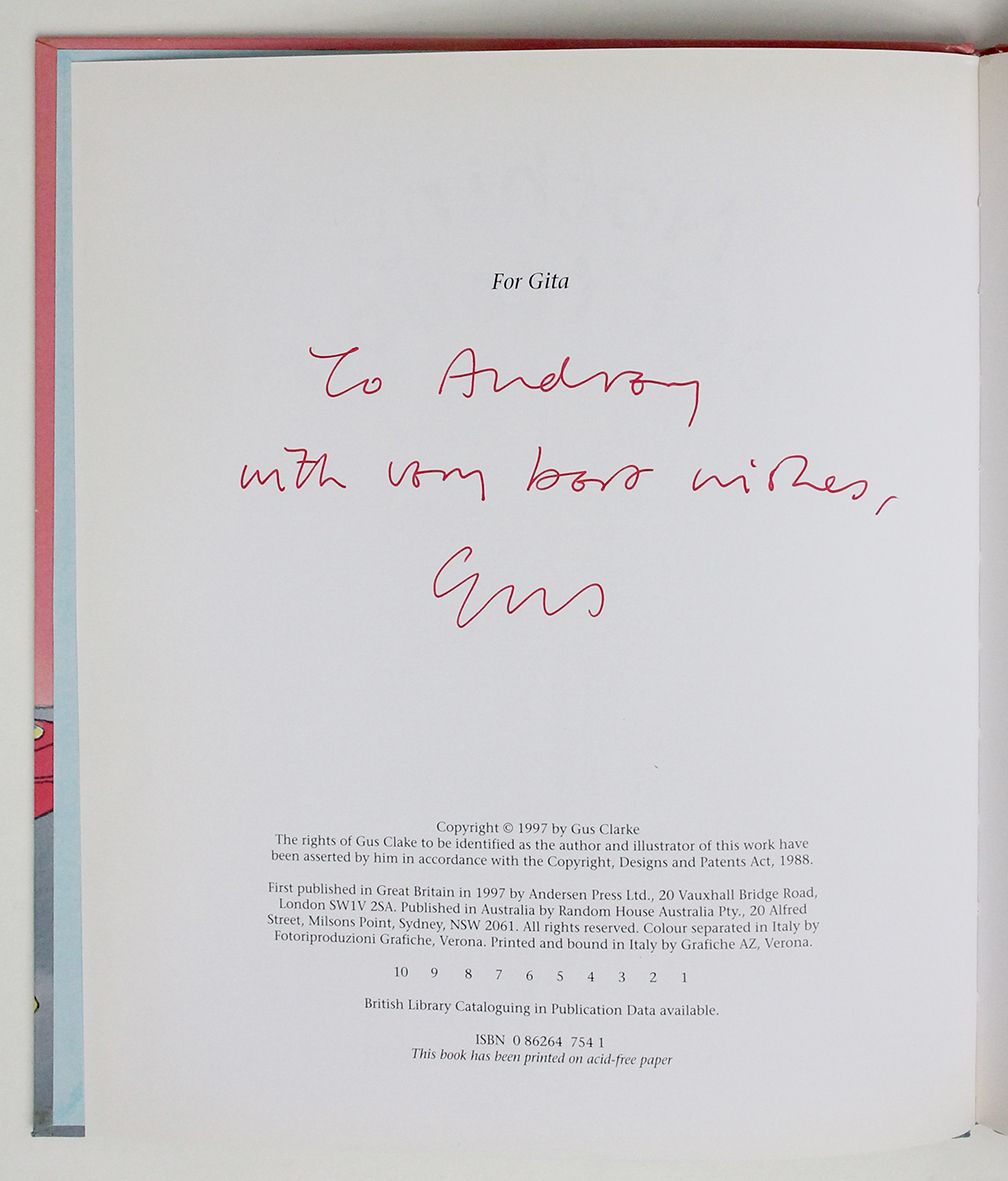 For Gita
To Andrey
with very best wishes,
Gus
Copyright © 1997 by Gus Clarke
The rights of Gus Clake to be identified as the author and illustrator of this work have
been asserted by him in accordance with the Copyright, Designs and Patents Act, 1988.
First published in Great Britain in 1997 by Andersen Press Ltd., 20 Vauxhall Bridge Road,
London SW1V 2SA. Published in Australia by Random House Australia Pty., 20 Alfred
Street, Milsons Point, Sydney, NSW 2061. All rights reserved. Colour separated in Italy by
Fotoriproduzioni Grafiche, Verona. Printed and bound in Italy by Grafiche AZ, Verona.
10 9 8 7 6 5 4 3 2 1
British Library Cataloguing in Publication Data available.
ISBN 0 86264 754 1
This book has been printed on acid-free paper